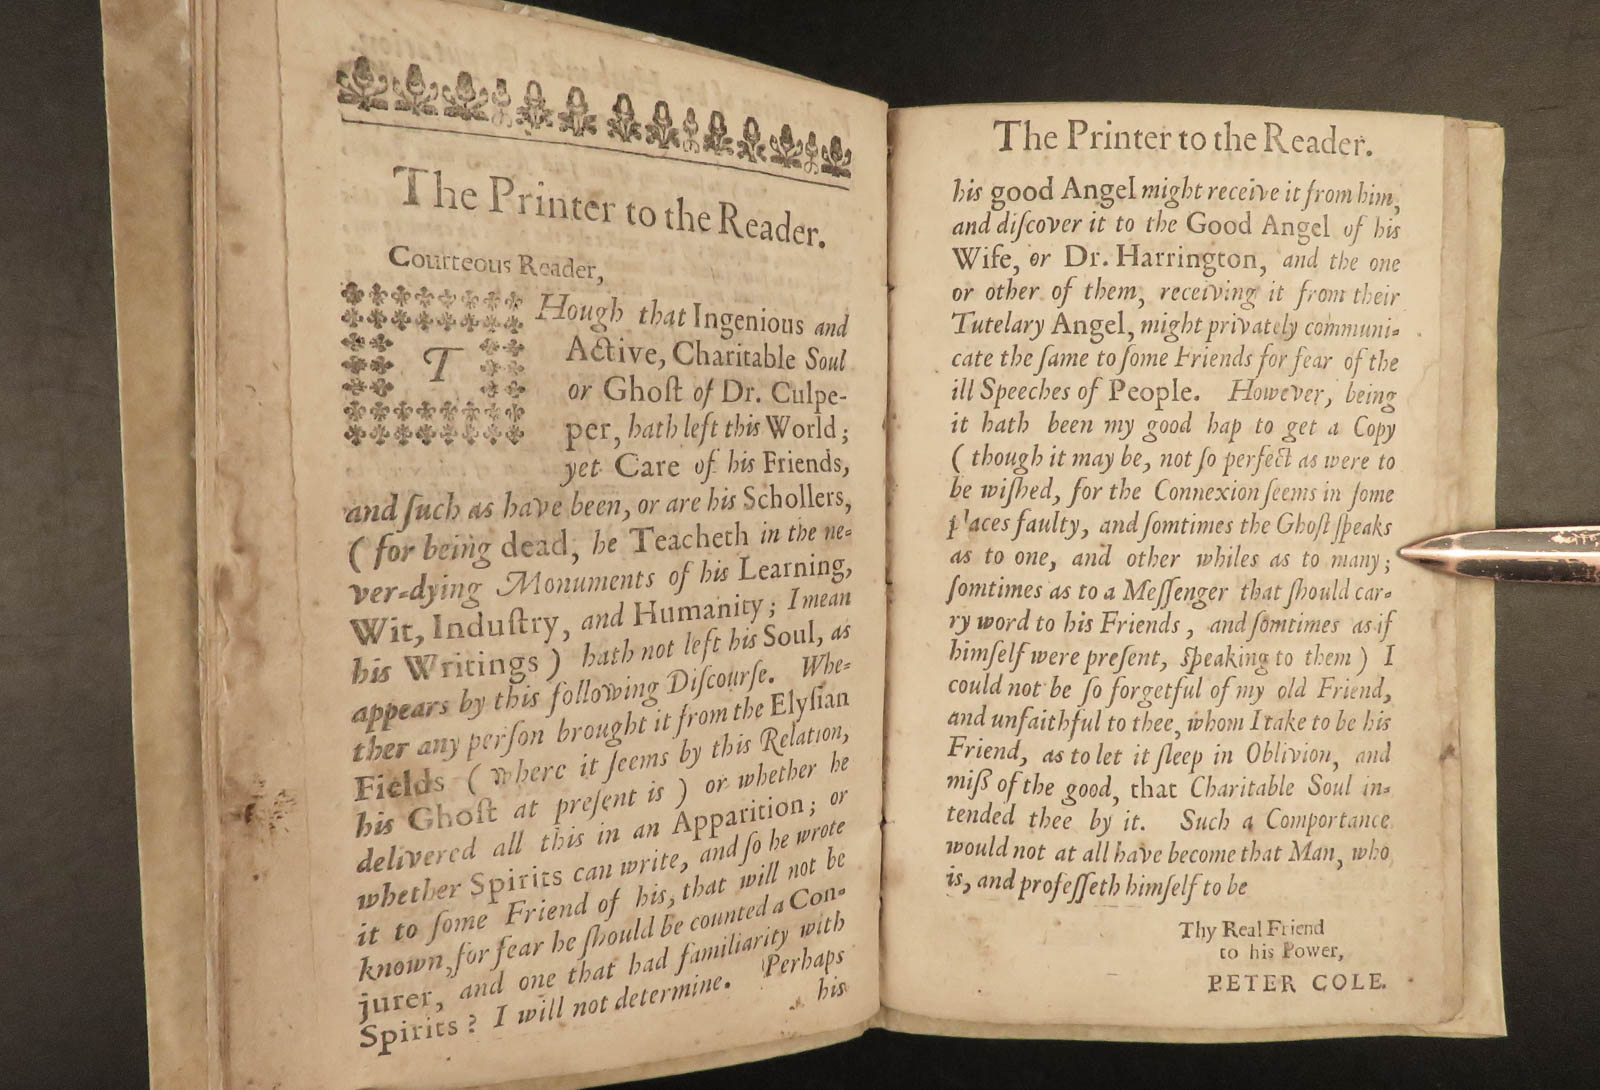 The Printer to the Reader.
Courteous Reader,
THough that Ingenious and
Active, Charitable Soul
or Ghoſt of Dr. Culpe-
per, hath left this World;
yet Care of his Friends,
and ſuch as have been, or are his Schollers,
( for being dead, he Teacheth in the ne-
ver-dying Monuments of his Learning,
Wit, Induſtry, and Humanity; I mean
his Writings ) hath not left his Soul, as
appears by this following Diſcourſe. Whe-
ther any perſon brought it from the Elyſian
Fields ( where it ſeems by this Relation,
his Ghoſt at preſent is ) or whether he
delivered all this in an Apparition; or
whether Spirits can write, and ſo he wrote
it to ſome Friend of his, that will not be
known, for fear he ſhould be counted a Con-
jurer, and one that had familiarity with
Spirits? I will not determine. Perhaps
his
The Printer to the Reader.
his good Angel might receive it from him,
and diſcover it to the Good Angel of his
Wife, or Dr. Harrington, and the one
or other of them, receiving it from their
Tutelary Angel, might privately communi-
cate the ſame to ſome Friends for fear of the
ill Speeches of People. However, being
it hath been my good hap to get a Copy
( though it may be, not ſo perfect as were to
be wiſhed, for the Connexion ſeems in ſome
places faulty, and ſomtimes the Ghoſt ſpeaks
as to one, and other whiles as to many;
ſomtimes as to a Meſſenger that ſhould car-
ry word to his Friends, and ſomtimes as if
himſelf were preſent, ſpeaking to them ) I
could not be ſo forgetful of my old Friend,
and unfaithful to thee, whom I take to be his
Friend, as to let it ſleep in Oblivion, and
miſs of the good, that Charitable Soul in-
tended thee by it. Such a Comportance
would not at all have become that Man, who
is, and profeſſeth himſelf to be
Thy Real Friend
to his Power,
PETER COLE.